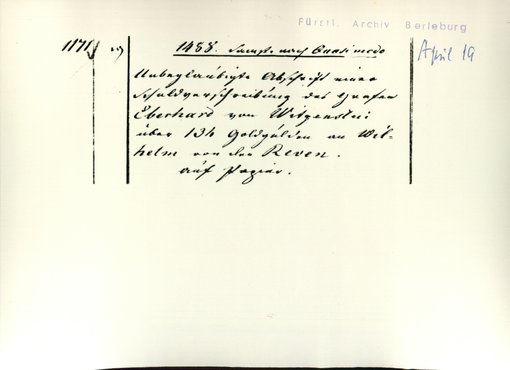 Fürstl. Archiv Berleburg
1488. Samst. nach Quasimodo
April 19
Unbeglaubigte Abschrift einer
Schuldverschreibung des Grafen
Eberhard von Witgenstein
über 134 Goldgülden an Wil-
helm von der Reven.
auf Papier.